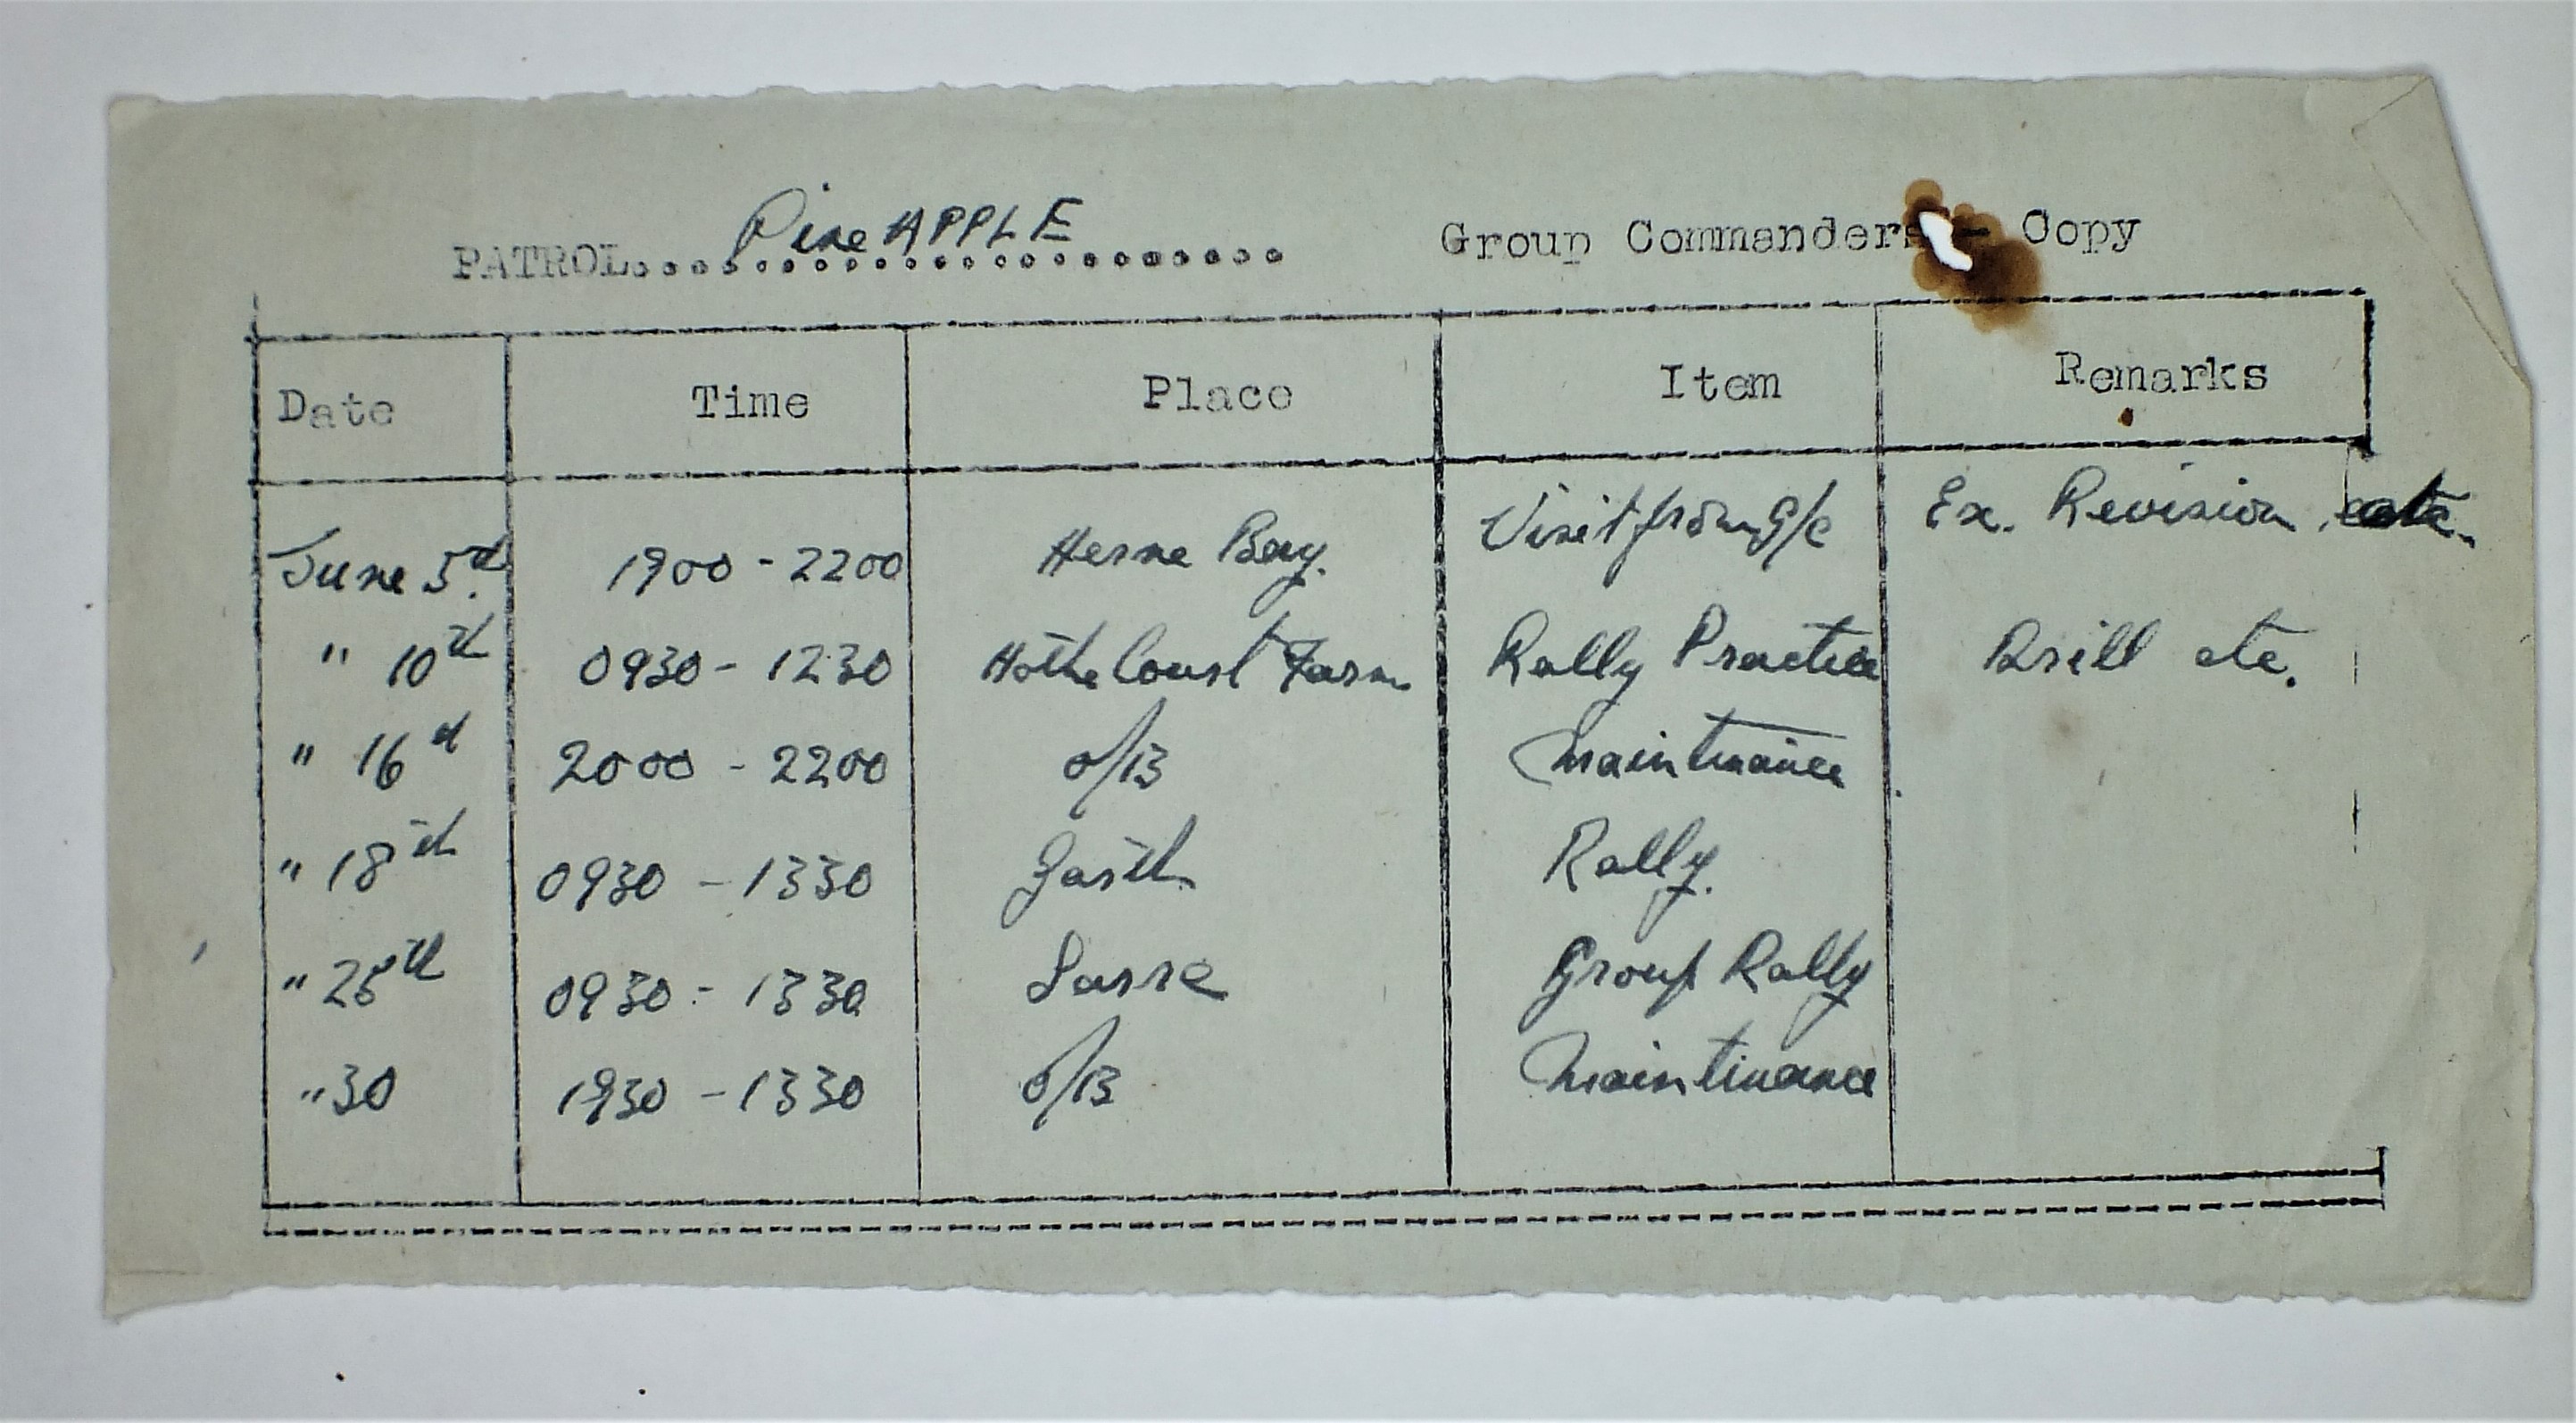 PATROL...................... Pine APPLE Group Commanders - Copy
Date Time Place Item Remarks
June 5th. 1900 - 2200 Herne Bay. Visit from G/C Ex. Revision etc.
" 10th 0930 - 1230 Hothe Court Farm Rally Practice Drill etc.
" 16th 2000 - 2200 O/B Maintinance
" 18th 0930 - 1330 Rally.
" 25th 0930 - 1330 Sarre Group Rally
" 30 1930 - 1330 O/B Maintinance